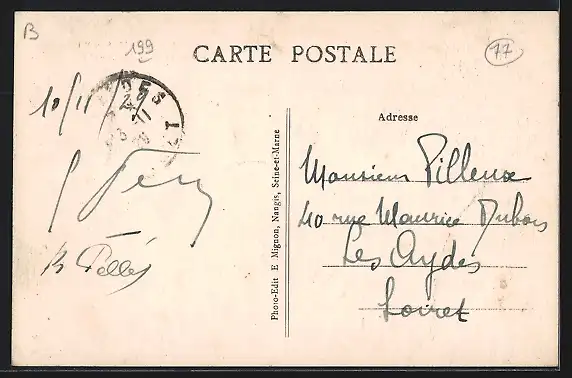 B
199
CARTE POSTALE
77
10/11/
Adresse
Monsieur Pilleux
40 rue Maurice Dubois
Les Aydes
Loiret
Photo-Edit E Mignon, Nangis, Seine-et-Marne